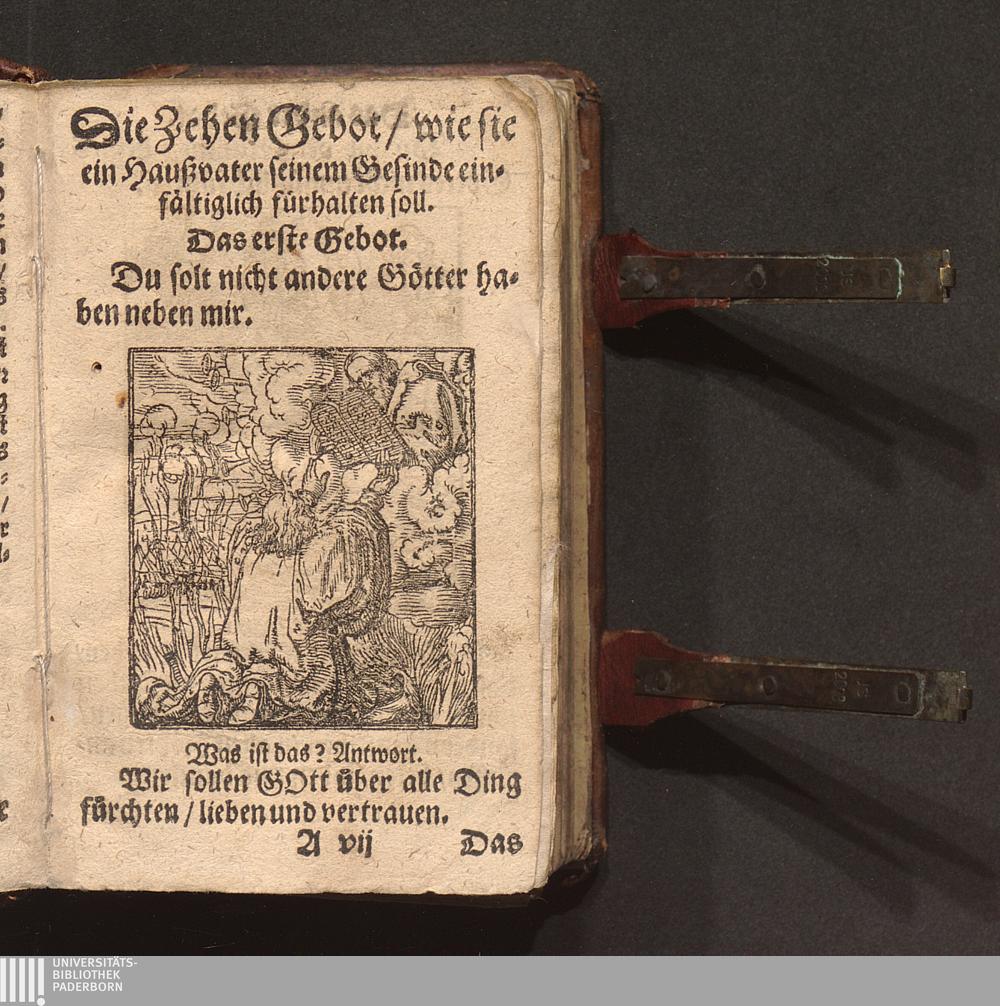 Die Zehen Gebot / wie sie
ein Haußvater seinem Gesinde ein-
fältiglich fürhalten soll.
Das erste Gebot.
Du solt nicht andere Götter ha-
ben neben mir.
Was ist das? Antwort.
Wir sollen GOtt über alle Ding
fürchten / lieben und vertrauen.
A vij Das
UNIVERSITÄTS-
BIBLIOTHEK
PADERBORN